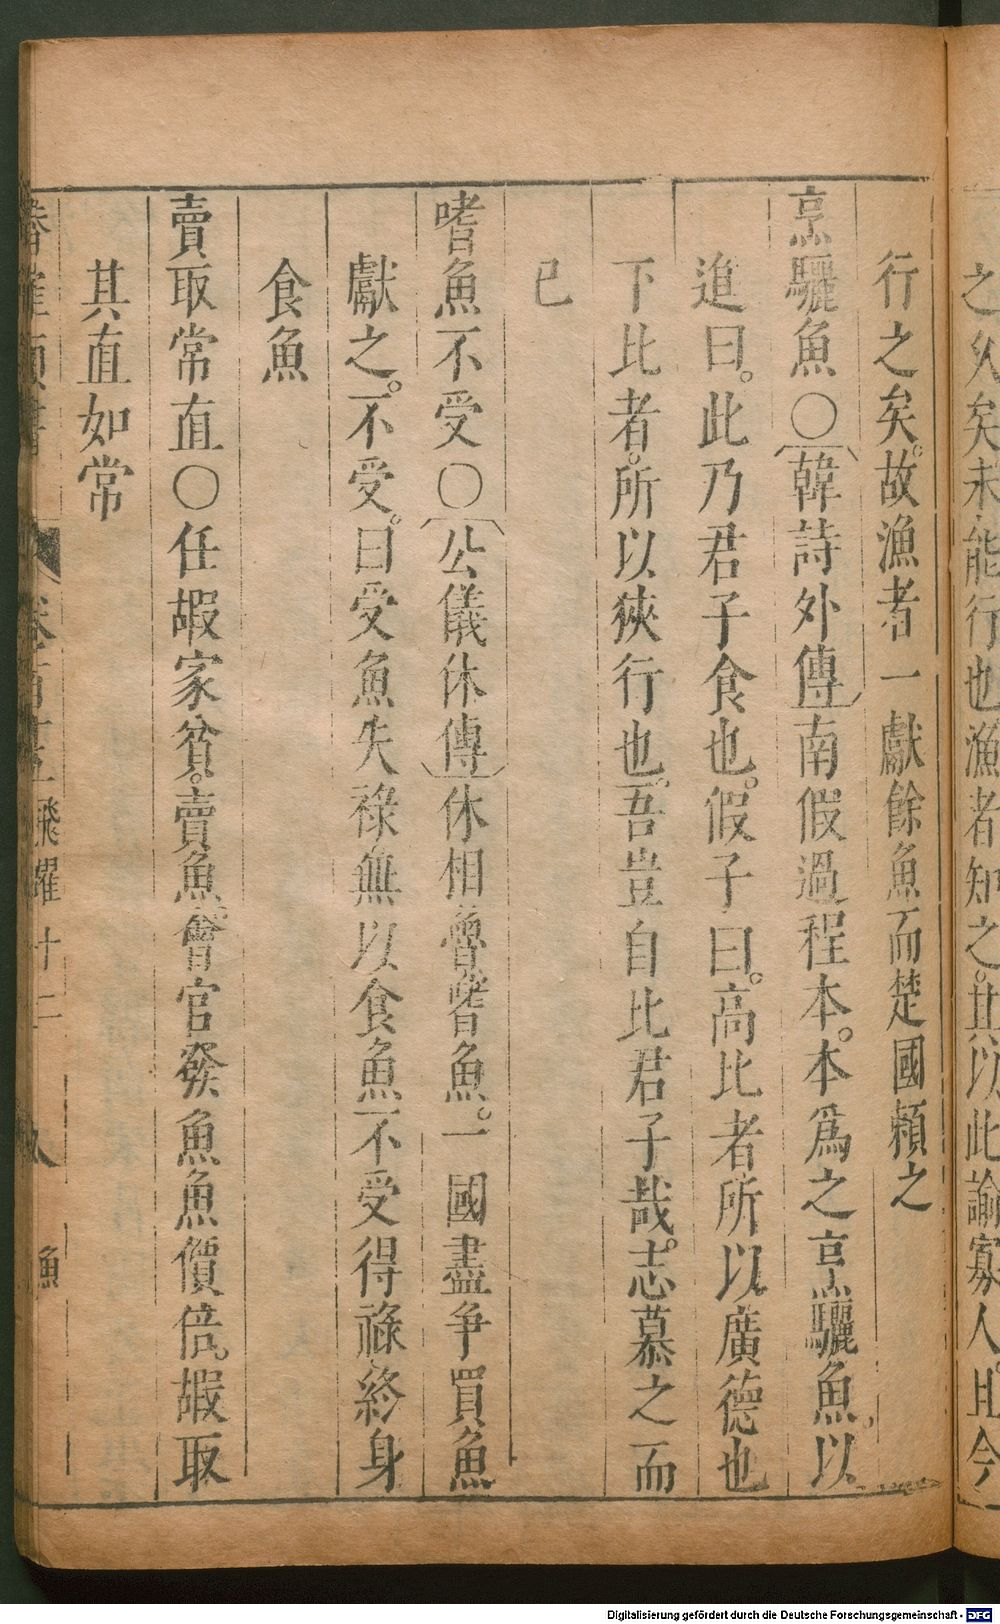 之久矣未能行也漁者知之其以此諭寡人且今
行之矣故漁者一獻餘魚而楚國頼之
烹驪魚○韓詩外傳南假過程本本爲之烹驪魚以
進曰此乃君子食也假子曰高比者所以廣德也
下比者所以狹行也吾豈自比君子哉志慕之而
已
嗜魚不受○公儀休傳休相魯嗜魚一國盡争買魚
獻之不受曰受魚失祿無以食魚不受得祿終身
食魚
賣取常直○任嘏家貧賣魚會官發魚魚價倍嘏取
其直如常
類書 飛躍十二 漁
Digitalisierung gefördert durch die Deutsche Forschungsgemeinschaft - DFG